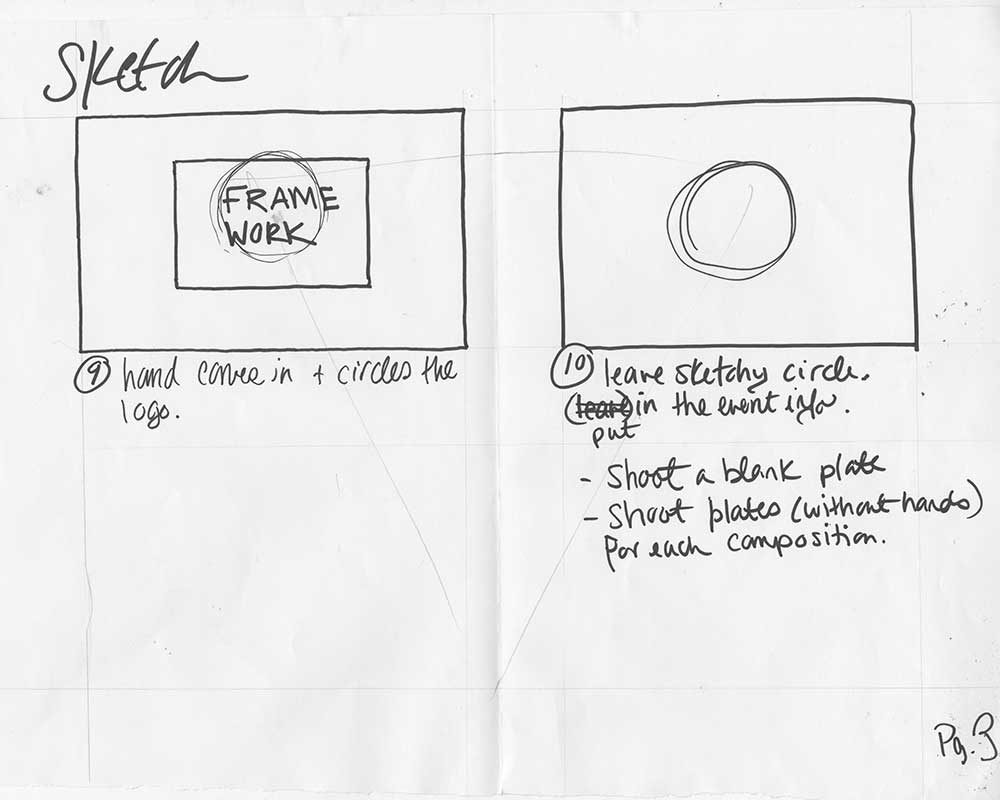 Sketch
FRAME
WORK
9 hand comes in + circles the
logo.
10 leave sketchy circle.
(leave) in the event info.
put
- Shoot a blank plate
- Shoot plates (without hands)
for each composition.
Pg. 3